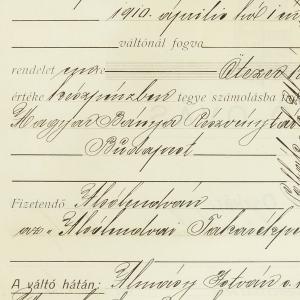 1910. április hó 1
váltónál fogva
rendelet Ötezer
értéke készpénzben tegye számolásba
Magyar Bánya Részvénytár
Budapest
Fizetendő
az Takarékp
A váltó hátán: Almásy István